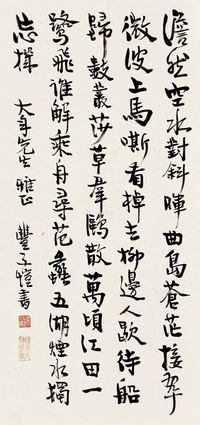 澹然空水對斜暉曲島蒼茫接翠
微波上馬嘶看棹去柳邊人歇待船
歸數叢莎草羣鷗散萬頃江田一
鷺飛誰解乘舟尋范蠡五湖煙水獨
忘機
大年先生雅正
豐子愷書